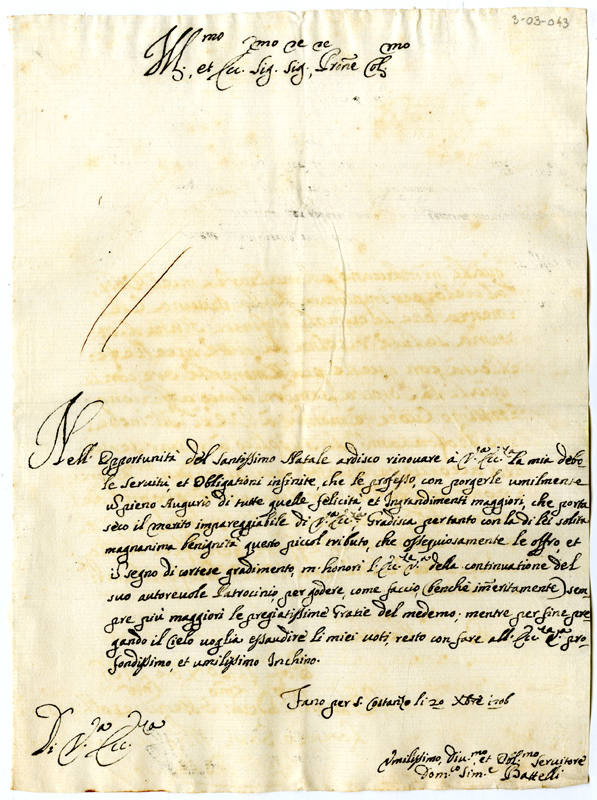 3-03-043
Ill.mo et Ecc.mo Sig.re Sig.re Prone Col.mo
Nell'Opportunità del Santissimo Natale ardisco rinouare à V.ra Ecc.za la mia debo
le seruitù et Obligationi infinite, che le professo, con porgerle umilmente
un pieno Augurio di tutte quelle felicità et Ingrandimenti maggiori, che porta
seco il merito impareggiabile di V.ra Ecc.za Gradisca per tanto con la di lei solita
magnanima benignità questo picciol tributo, che ossequiosamente le offro et
in segno di cortese gradimento, m'honori l'Ecc.za V.ra della continuatione del
suo autoreuole Patrocinio per godere, come faccio (benche im̃eritamente) sem
pre più maggiori le pregiatissime Gratie del medemo; mentre per fine pre
gando il Cielo voglia essaudire li miei voti, resto con fare all'Ecc.za V.ra pro-
fondissimo, et umilissimo Inchino.
Fano per S. Costanzo li 20 Xbre 1706
Di V.ra Ecc.za
Vmilissimo, Diu.mo et Obl.mo Seruitore
Dom.co Sim.e Battelli